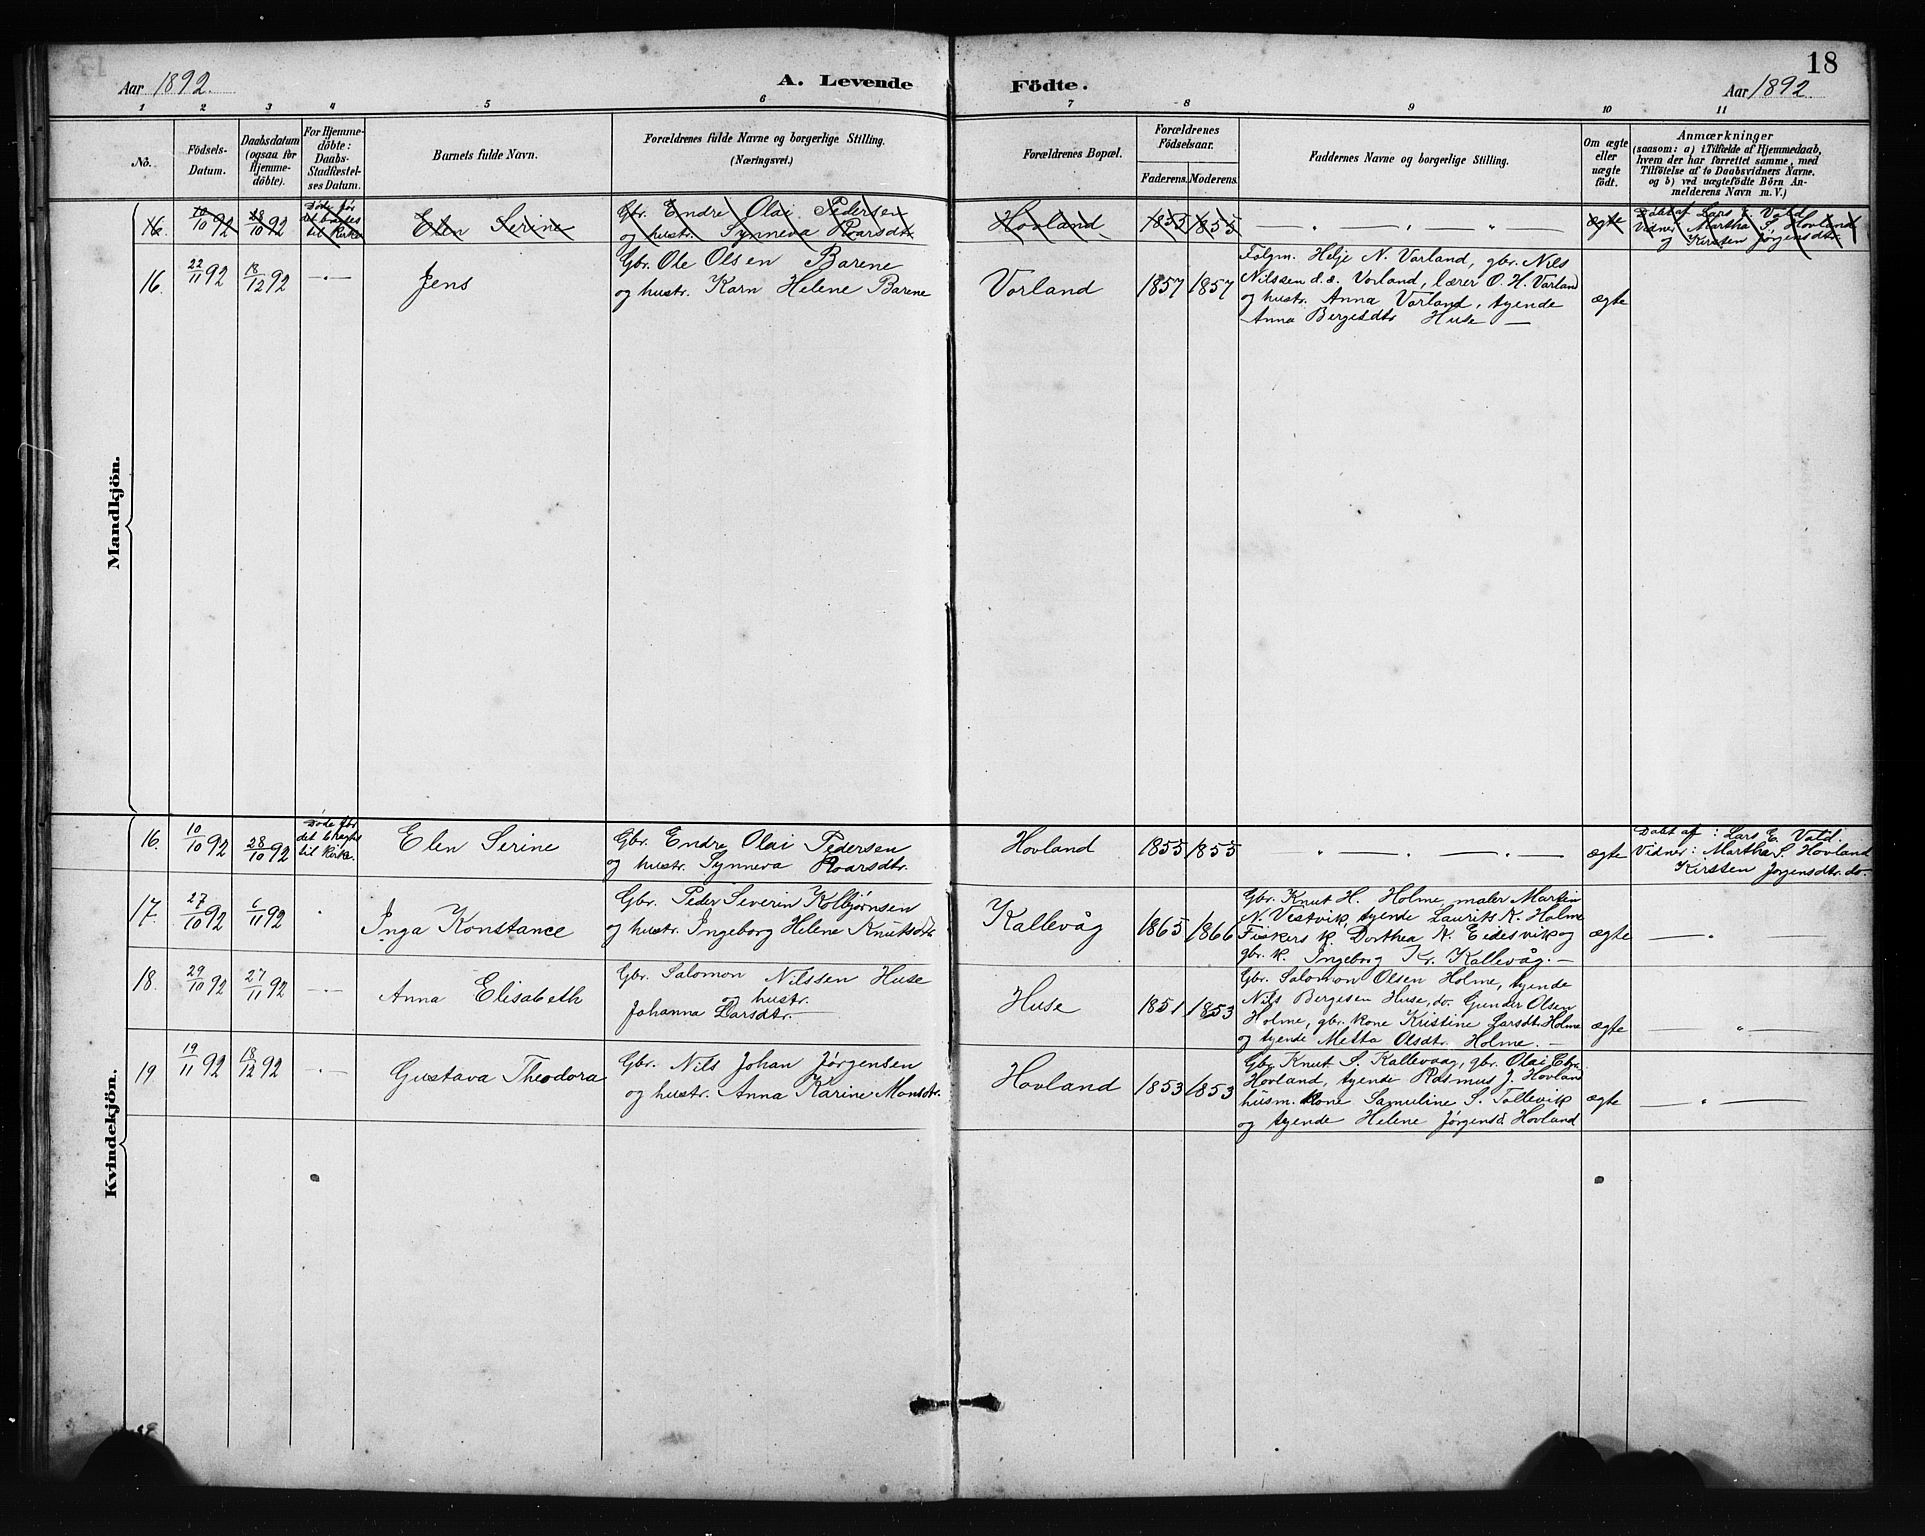 Aar 1892. A. Levende Födte. Aar 1892. 18
1 2 3 4 5 6 7 8 9 10 11
No.
Födsels-
Datum.
Daabsdatum
(ogsaa for
Hjemme-
döbte).
For Hjemme-
döbte:
Daabs-
Stadfæstel-
ses Datum.
Barnets fulde Navn.
Forældrenes fulde Navne og borgerlige Stilling.
(Næringsvei.)
Forældrenes Bopæl.
Forældrenes
Födselsaar.
Faderens. Moderens.
Faddernes Navne og borgerlige Stilling.
Om ægte
eller
uægte
födt.
Anmærkninger
(saasom: a) i Tilfælde af Hjemmedaab,
hvem der har forrettet samme, med
Tilföielse af to Daabsvidners Navne.
og b) ved uægtefödte Börn An-
melderens Navn m. V.)
Mandkjön.
16. 10/10 92 28/10 92
Döde før
det bragtes
til Kirke
Elen Serine
Gbr. Endre Olai Pedersen
og hustr. Synneva Roarsdtr.
Hovland 1855 1855 — „ — „ — „ — ægte
Döbt af Lars E. Vold
Vidner Martha S. Hovland
og Kirsten Jørgensdtr.
16. 22/11 92 18/12 92 —„— Jens
Gbr. Ole Olsen Barene
og hustr. Karn Helene Barene
Vorland 1857 1857
Følgm. Helje N. Vorland, gbr. Nils
Nilssen d.e. Vorland, lærer O. H. Vorland
og hustr. Anna Vorland, tyende
Anna Bergesdtr Huse —
ægte
Kvindekjön.
16. 10/10 92 28/10 92
Döde før
det bragtes
til Kirke.
Elen Serine
Gbr. Endre Olai Pedersen
og hustr. Synneva Roarsdtr.
Hovland 1855 1855 „ — „ — „ — ægte
Döbt af: Lars E. Vold.
Vidner: Martha S. Hovland
Kirsten Jørgensdtr. do.
17. 27/10 92 6/11 92 „ Inga Konstance
Gbr. Peder Severin Kolbjørnsen
og hustr. Ingeborg Helene Knutsdtr
Kallevåg 1865 1866
Gbr. Knut H. Holme, maler Martin
N. Vestvik, tyende Laurits K. Holme
Fiskers k. Dorthea N. Eidesvik og
gbr. k. Ingeborg Kr. Kallevåg. —
ægte — „ —
18. 29/10 92 27/11 92 —„— Anna Elisabeth
Gbr. Salomon Nilssen Huse
og hustr.
Johanna Larsdtr. —
Huse 1851 1853
Gbr. Salomon Olsen Holme, tyende
Nils Bergesen Huse, do. Gunder Olsen
Holme, gbr. kone Kristine Larsdtr. Holme
og tyende Metta Olsdtr. Holme. —
ægte — „ —
19 19/11 92 18/12 92 —„— Gustava Theodora
Gbr. Nils Johan Jørgensen
og hustr. Anna Karine Monsdtr.
Hovland 1853 1853
Gbr. Knut S. Kallevaag, gbr. Olai
Hovland, tyende Rasmus J. Hovland
husm. kone Samuline S. Tollevik
og tyende Helene Jørgensd Hovland
ægte — „ —